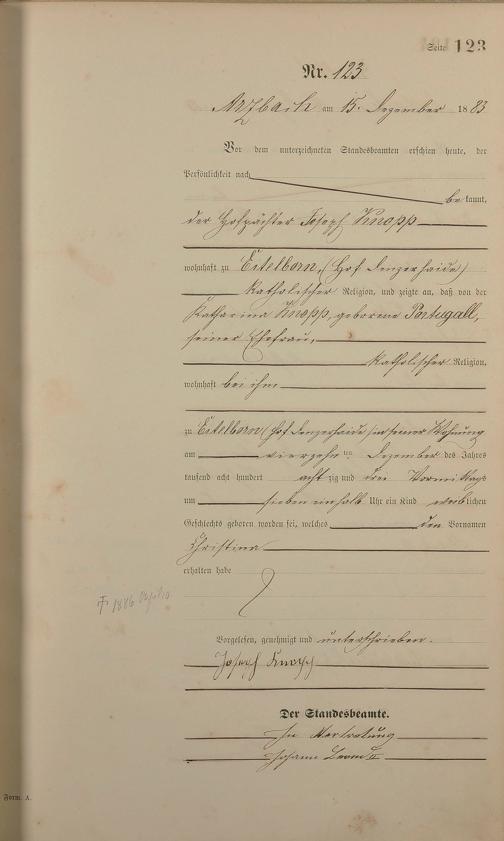 Seite 123
Nr. 123
Arzbach am 15. Dezember 1883
Vor dem unterzeichneten Standesbeamten erschien heute, der
Persönlichkeit nach
bekannt,
der Hofpächter Joseph Knopp
wohnhaft zu Eitelborn, (Hof Denzerhaide)
katholischer Religion, und zeigte an, daß von der
Katharina Knopp, geborene Portugall,
seiner Ehefrau,
katholischer Religion,
wohnhaft bei ihm
zu Eitelborn (Hof Denzerhaide) in seiner Wohnung
am vierzehnten Dezember des Jahres
tausend acht hundert achtzig und drei Vormittags
um sieben einhalb Uhr ein Kind weiblichen
Geschlechts geboren worden sei, welches den Vornamen
Christina
erhalten habe
† 1886
Vorgelesen, genehmigt und unterschrieben.
Joseph Knopp
Der Standesbeamte.
In Vertretung
Johann
Form. A.